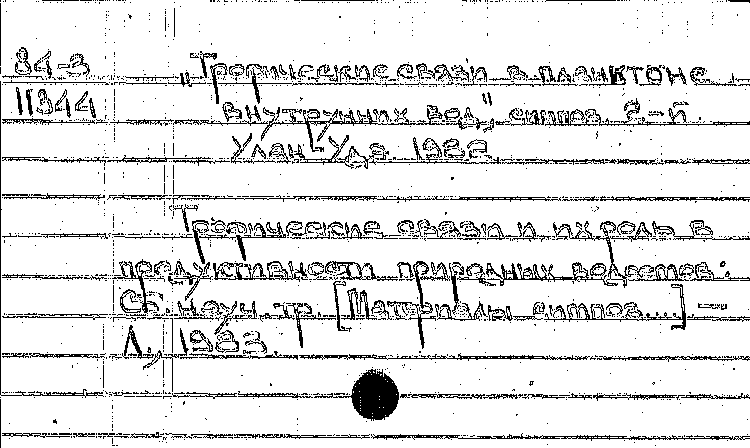 84-3 "Трофические связи в планктоне
11344 внутренних вод", симпоз. 2-й.
Улан-Удэ. 1982.
Трофические связи и их роль в
продуктивности природных водоемов:
Сб. науч. тр. [Материалы симпоз....] -
Л., 1983.